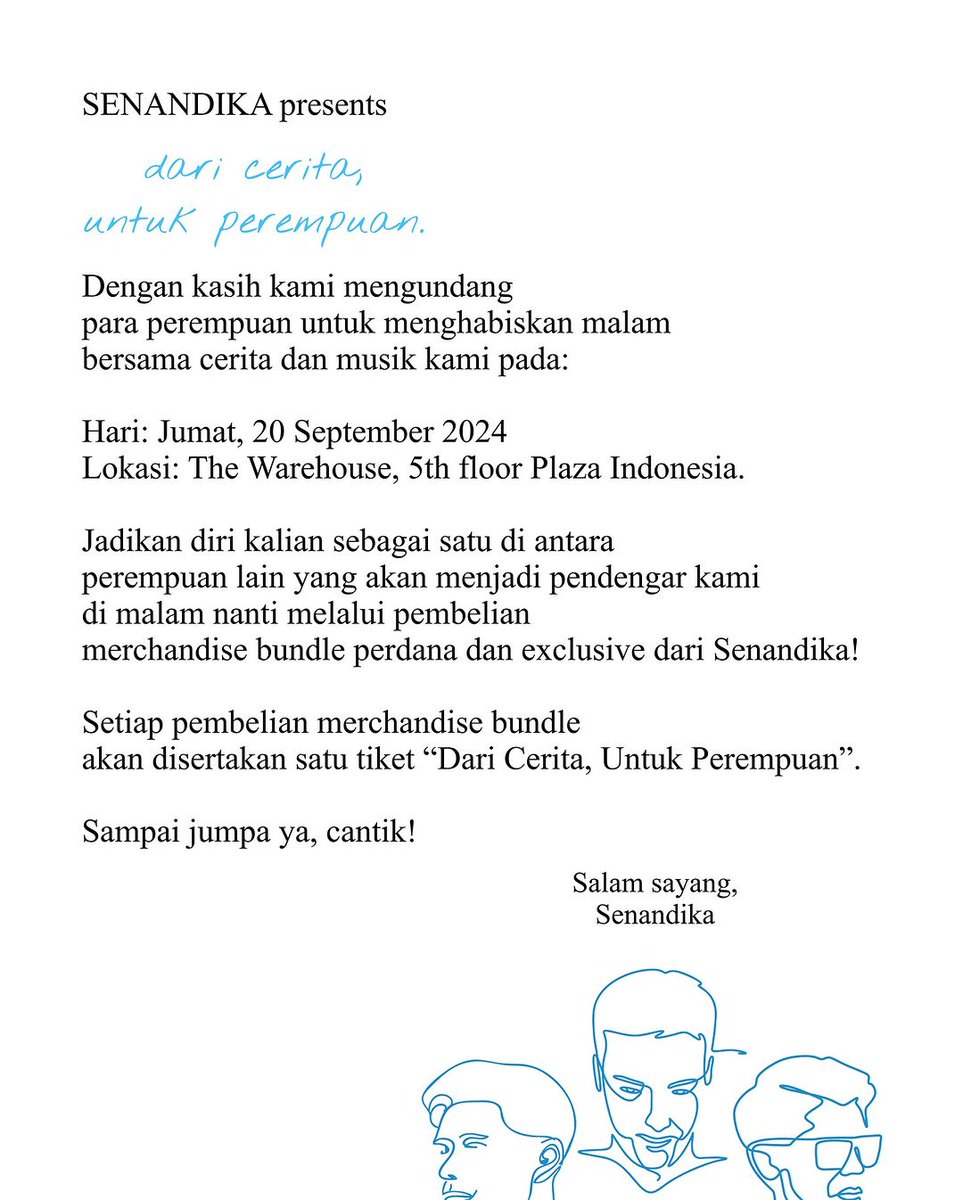 SENANDIKA presents
dari cerita,
untuk perempuan.
Dengan kasih kami mengundang
para perempuan untuk menghabiskan malam
bersama cerita dan musik kami pada:
Hari: Jumat, 20 September 2024
Lokasi: The Warehouse, 5th floor Plaza Indonesia.
Jadikan diri kalian sebagai satu di antara
perempuan lain yang akan menjadi pendengar kami
di malam nanti melalui pembelian
merchandise bundle perdana dan exclusive dari Senandika!
Setiap pembelian merchandise bundle
akan disertakan satu tiket “Dari Cerita, Untuk Perempuan”.
Sampai jumpa ya, cantik!
Salam sayang,
Senandika